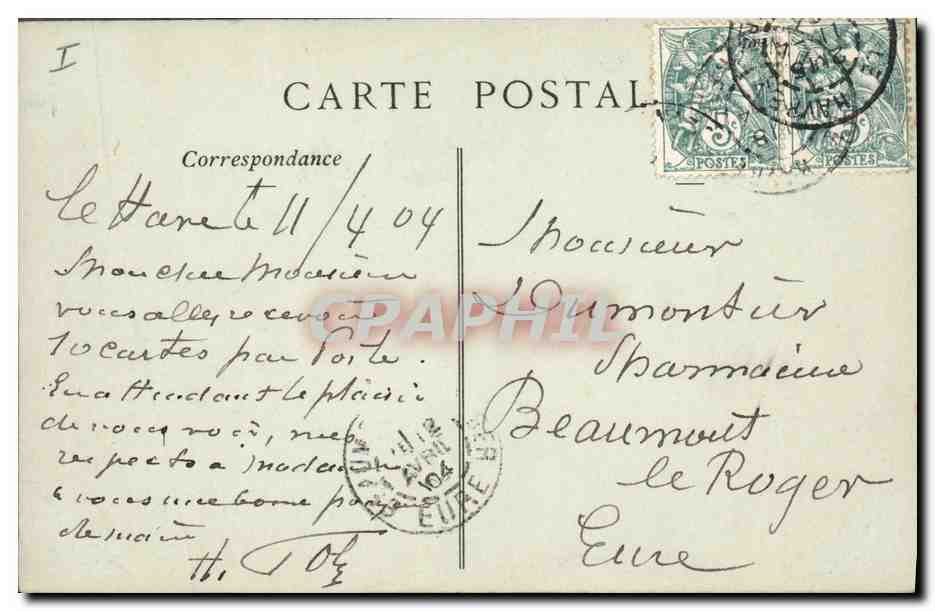 I
CARTE POSTALE
5c
POSTES
5c
POSTES
HAVRE
Correspondance
Le Havre le 11/4 04
Mon cher Monsieur
vous allez recevoir
10 cartes par Poste.
En attendant le plaisir
de vous voir, mes
respects à Madame
& vous une bonne poignée
de main
H.
Monsieur
Dumontier
Pharmacien
Beaumont
le Roger
Eure
AVRIL
04
EURE
CPAPHIL